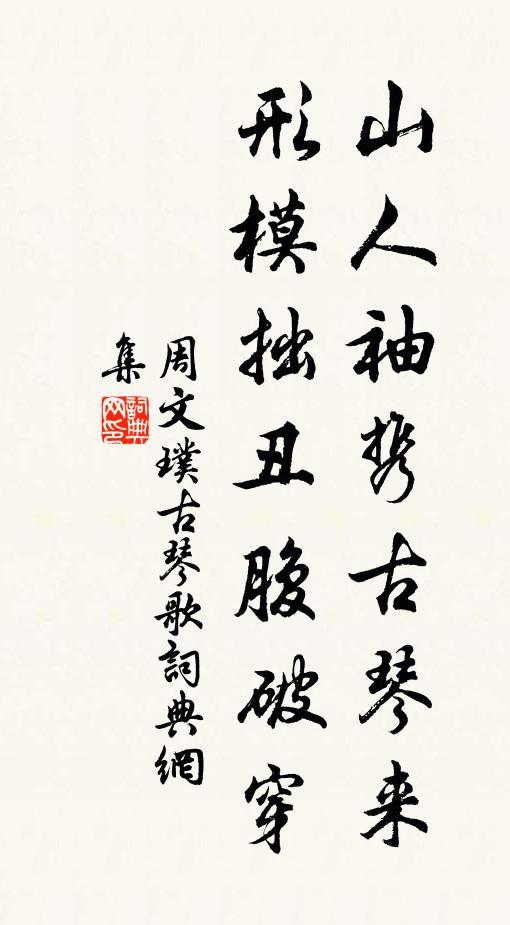 山人袖携古琴来
形模拙丑腹破穿
周文璞古琴歌詞典網
集
詞典网印